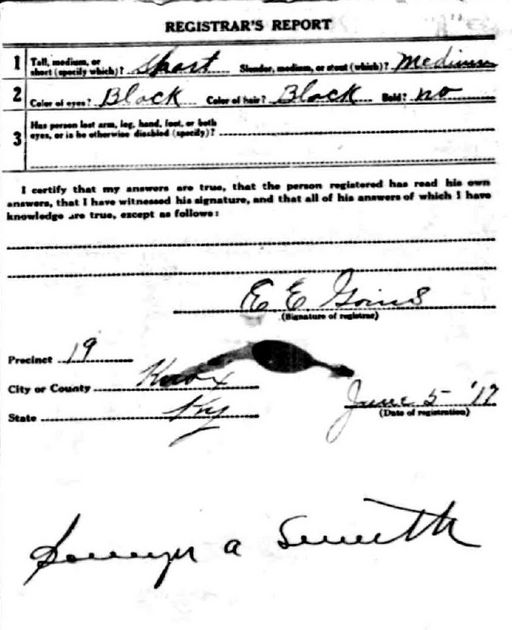 REGISTRAR'S REPORT
1 Tall, medium, or short (specify which)? Short Slender, medium, or stout (which)? Medium
2 Color of eyes? Black Color of hair? Black Bald? no
3 Has person lost arm, leg, hand, foot, or both eyes, or is he otherwise disabled (specify)?
I certify that my answers are true, that the person registered has read his own
answers, that I have witnessed his signature, and that all of his answers of which I have
knowledge are true, except as follows:
E E. Goins
(Signature of registrar)
Precinct 19
City or County Knox
State Ky
June 5 '17
(Date of registration)
a Smith